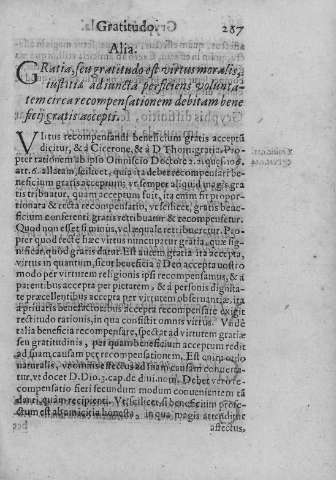 Gratitudo. 287
Alia.
GRatia, seu gratitudo est virtus moralis,
iustitiæ adiuncta perficiens volunta-
tem circa recompensationem debitam bene
ficij gratis accepti.
Virtus recompensandi beneficium gratis acceptũ
dicitur, & à Cicerone, & à D Thom gratia. Pro-
pter rationem ab ipso Omniscio Doctore 2. 2. quęst. 106.
art. 6. allatam, scilicet, quia ita debet recompensari be-
neficium gratis acceptum, vt semper aliquid magis gra
tis tribuatur, quam acceptum fuit, ita enim fit propor-
tionata & recta recompensatio, vt, scilicet, gratis bene-
ficium conferenti, gratis retribuatur & recompensetur.
Quod non esset si minus, vel æquale retribueretur. Pro-
pter quod rectè hæc virtus nuncupatur gratia, quæ sig-
nificat, quod gratis datur. Est autem gratia ita accepta,
virtus in quantum, sicut beneficia à Deo accepta nostro
modo per virtutem religionis ipsi recompensamus, & à
parentibus accepta per pietatem, & à personis dignita-
te præcellentibus accepta per virtutem obseruantiæ, ita
à priuatis benefactoribus accepta recompensare exigit
rectitudo rationis, in qua consistit omnis virtus. Vndè
talia beneficia recompensare, spectat ad virtutem gratiæ
seu gratitudinis, per quam beneficium acceptum redit
ad suam causam per recompensationem. Est enim ordo
naturalis, vt omnis effectus ad suam causam conuerta-
tur, vt docet D. Dio. 3. cap. de diui. nom. Debet vero re-
compensatio fieri secundum modum conuenientem tã
danti, quam recipienti. Vt, scilicet, si beneficium profe-
ctum est ab amicitia honesta in qua magis attenditur
affectus,